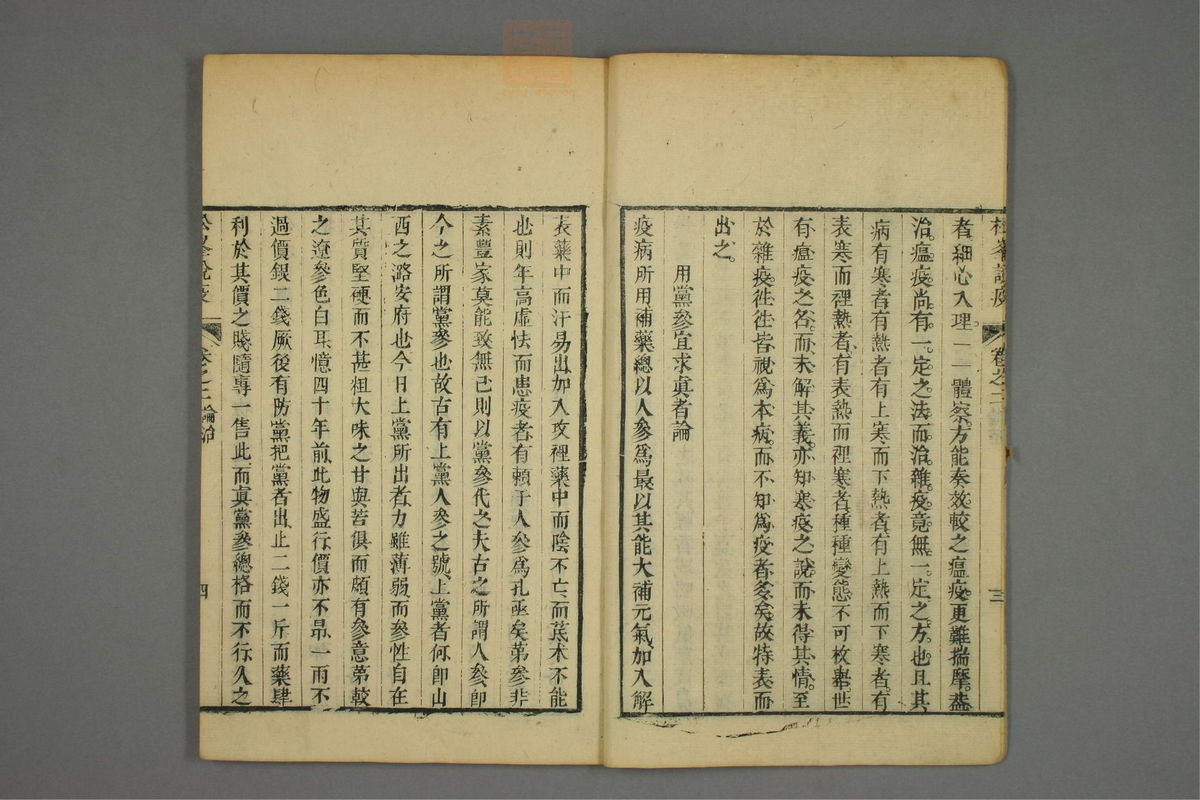 松峯說疫 卷之二 三
者細心入理一一體察方能奏效較之瘟疫更難揣摩葢
治瘟疫尚有一定之法而治雜疫竟無一定之方也且其
病有寒者有熱者有上寒而下熱者有上熱而下寒者有
表寒而裡熱者有表熱而裡寒者種種變態不可枚舉世
有瘟疫之名而未解其義亦知寒疫之說而未得其情至
於雜疫徃徃皆視爲本病而不知爲疫者多矣故特表而
出之
用黨參宜求眞者論
疫病所用補藥總以人參爲最以其能大補元氣加入解
表藥中而汗易出加入攻裡藥中而陰不亡而芪术不能
也則年高虛怯而患疫者有賴于人參爲孔亟矣第參非
素豐家莫能致無已則以黨參代之夫古之所謂人參卽
今之所謂黨參也故古有上黨人參之號上黨者何卽山
西之潞安府也今日上黨所出者力雖薄弱而參性自在
其質堅硬而不甚粗大味之甘與苦俱而頗有參意第較
之遼參色白耳憶四十年前此物盛行價亦不昂一兩不
過價銀二錢厥後有防黨把黨者出止二錢一斤而藥肆
利於其價之賤隨專一售此而眞黨參總格而不行久之
松峯說疫 卷之二論治 四